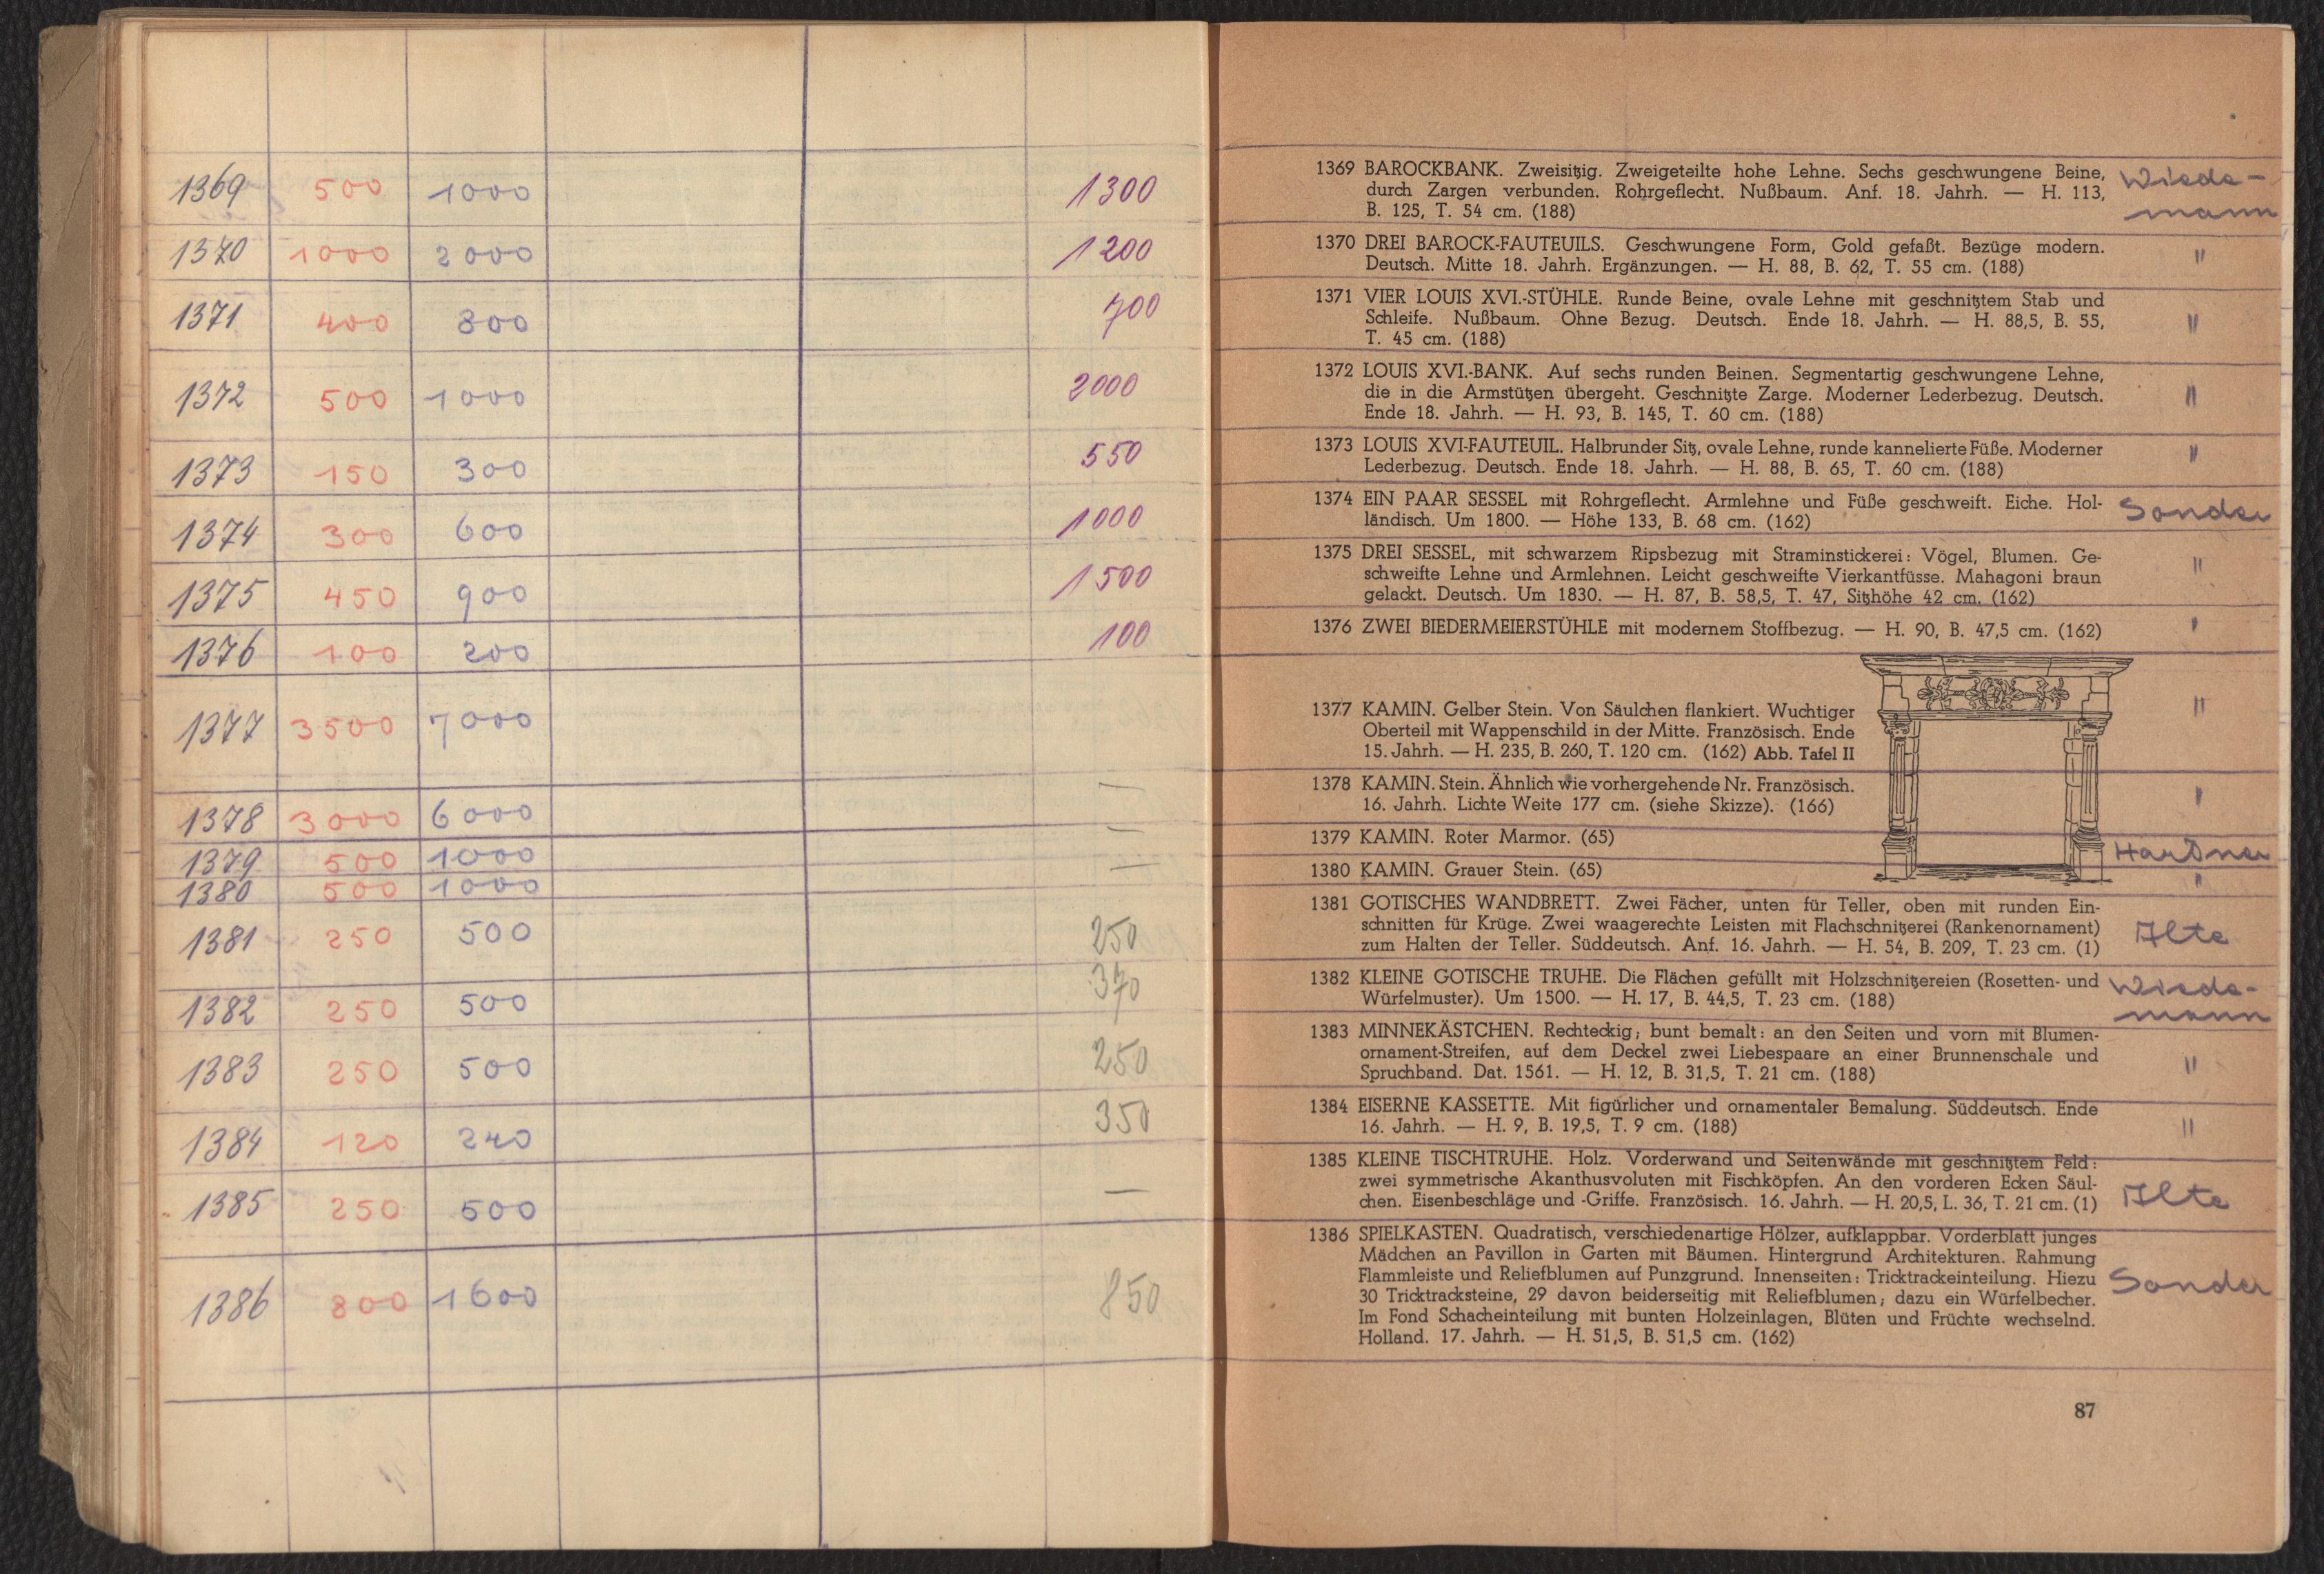 1369 500 1000 1300
1370 1000 2000 1200
1371 400 800 700
1372 500 1000 2000
1373 150 300 550
1374 300 600 1000
1375 450 900 1500
1376 100 200 100
1377 3500 7000
1378 3000 6000 —
1379 500 1000 —
1380 500 1000 —
1381 250 500 250
1382 250 500 370
1383 250 500 250
1384 120 240 350
1385 250 500 —
1386 800 1600 850
1369 BAROCKBANK. Zweisitzig. Zweigeteilte hohe Lehne. Sechs geschwungene Beine, Wiede-
durch Zargen verbunden. Rohrgeflecht. Nußbaum. Anf. 18. Jahrh. — H. 113,
B. 125, T. 54 cm. (188) mann
1370 DREI BAROCK-FAUTEUILS. Geschwungene Form, Gold gefaßt. Bezüge modern. "
Deutsch. Mitte 18. Jahrh. Ergänzungen. — H. 88, B. 62, T. 55 cm. (188)
1371 VIER LOUIS XVI.-STÜHLE. Runde Beine, ovale Lehne mit geschnitztem Stab und
Schleife. Nußbaum. Ohne Bezug. Deutsch. Ende 18. Jahrh. — H. 88,5, B. 55, "
T. 45 cm. (188)
1372 LOUIS XVI.-BANK. Auf sechs runden Beinen. Segmentartig geschwungene Lehne,
die in die Armstützen übergeht. Geschnitzte Zarge. Moderner Lederbezug. Deutsch. "
Ende 18. Jahrh. — H. 93, B. 145, T. 60 cm. (188)
1373 LOUIS XVI-FAUTEUIL. Halbrunder Sitz, ovale Lehne, runde kannelierte Füße. Moderner "
Lederbezug. Deutsch. Ende 18. Jahrh. — H. 88, B. 65, T. 60 cm. (188)
1374 EIN PAAR SESSEL mit Rohrgeflecht. Armlehne und Füße geschweift. Eiche. Hol- Sonder
ländisch. Um 1800. — Höhe 133, B. 68 cm. (162)
1375 DREI SESSEL, mit schwarzem Ripsbezug mit Straminstickerei: Vögel, Blumen. Ge- "
schweifte Lehne und Armlehnen. Leicht geschweifte Vierkantfüsse. Mahagoni braun
gelackt. Deutsch. Um 1830. — H. 87, B. 58,5, T. 47, Sitzhöhe 42 cm. (162)
1376 ZWEI BIEDERMEIERSTÜHLE mit modernem Stoffbezug. — H. 90, B. 47,5 cm. (162) "
1377 KAMIN. Gelber Stein. Von Säulchen flankiert. Wuchtiger "
Oberteil mit Wappenschild in der Mitte. Französisch. Ende
15. Jahrh. — H. 235, B. 260, T. 120 cm. (162) Abb. Tafel II
1378 KAMIN. Stein. Ähnlich wie vorhergehende Nr. Französisch. "
16. Jahrh. Lichte Weite 177 cm. (siehe Skizze). (166)
1379 KAMIN. Roter Marmor. (65)
1380 KAMIN. Grauer Stein. (65) "
1381 GOTISCHES WANDBRETT. Zwei Fächer, unten für Teller, oben mit runden Ein-
schnitten für Krüge. Zwei waagerechte Leisten mit Flachschnitzerei (Rankenornament) Ilte
zum Halten der Teller. Süddeutsch. Anf. 16. Jahrh. — H. 54, B. 209, T. 23 cm. (1)
1382 KLEINE GOTISCHE TRUHE. Die Flächen gefüllt mit Holzschnitzereien (Rosetten- und Wiede-
Würfelmuster). Um 1500. — H. 17, B. 44,5, T. 23 cm. (188) mann
1383 MINNEKÄSTCHEN. Rechteckig; bunt bemalt: an den Seiten und vorn mit Blumen-
ornament-Streifen, auf dem Deckel zwei Liebespaare an einer Brunnenschale und "
Spruchband. Dat. 1561. — H. 12, B. 31,5, T. 21 cm. (188)
1384 EISERNE KASSETTE. Mit figürlicher und ornamentaler Bemalung. Süddeutsch. Ende
16. Jahrh. — H. 9, B. 19,5, T. 9 cm. (188) "
1385 KLEINE TISCHTRUHE. Holz. Vorderwand und Seitenwände mit geschnitztem Feld:
zwei symmetrische Akanthusvoluten mit Fischköpfen. An den vorderen Ecken Säul-
chen. Eisenbeschläge und -Griffe. Französisch. 16. Jahrh. — H. 20,5, L. 36, T. 21 cm. (1) Ilte
1386 SPIELKASTEN. Quadratisch, verschiedenartige Hölzer, aufklappbar. Vorderblatt junges
Mädchen an Pavillon in Garten mit Bäumen. Hintergrund Architekturen. Rahmung
Flammleiste und Reliefblumen auf Punzgrund. Innenseiten: Tricktrackeinteilung. Hiezu Sonder
30 Tricktracksteine, 29 davon beiderseitig mit Reliefblumen; dazu ein Würfelbecher.
Im Fond Schacheinteilung mit bunten Holzeinlagen, Blüten und Früchte wechselnd.
Holland. 17. Jahrh. — H. 51,5, B. 51,5 cm. (162)
87